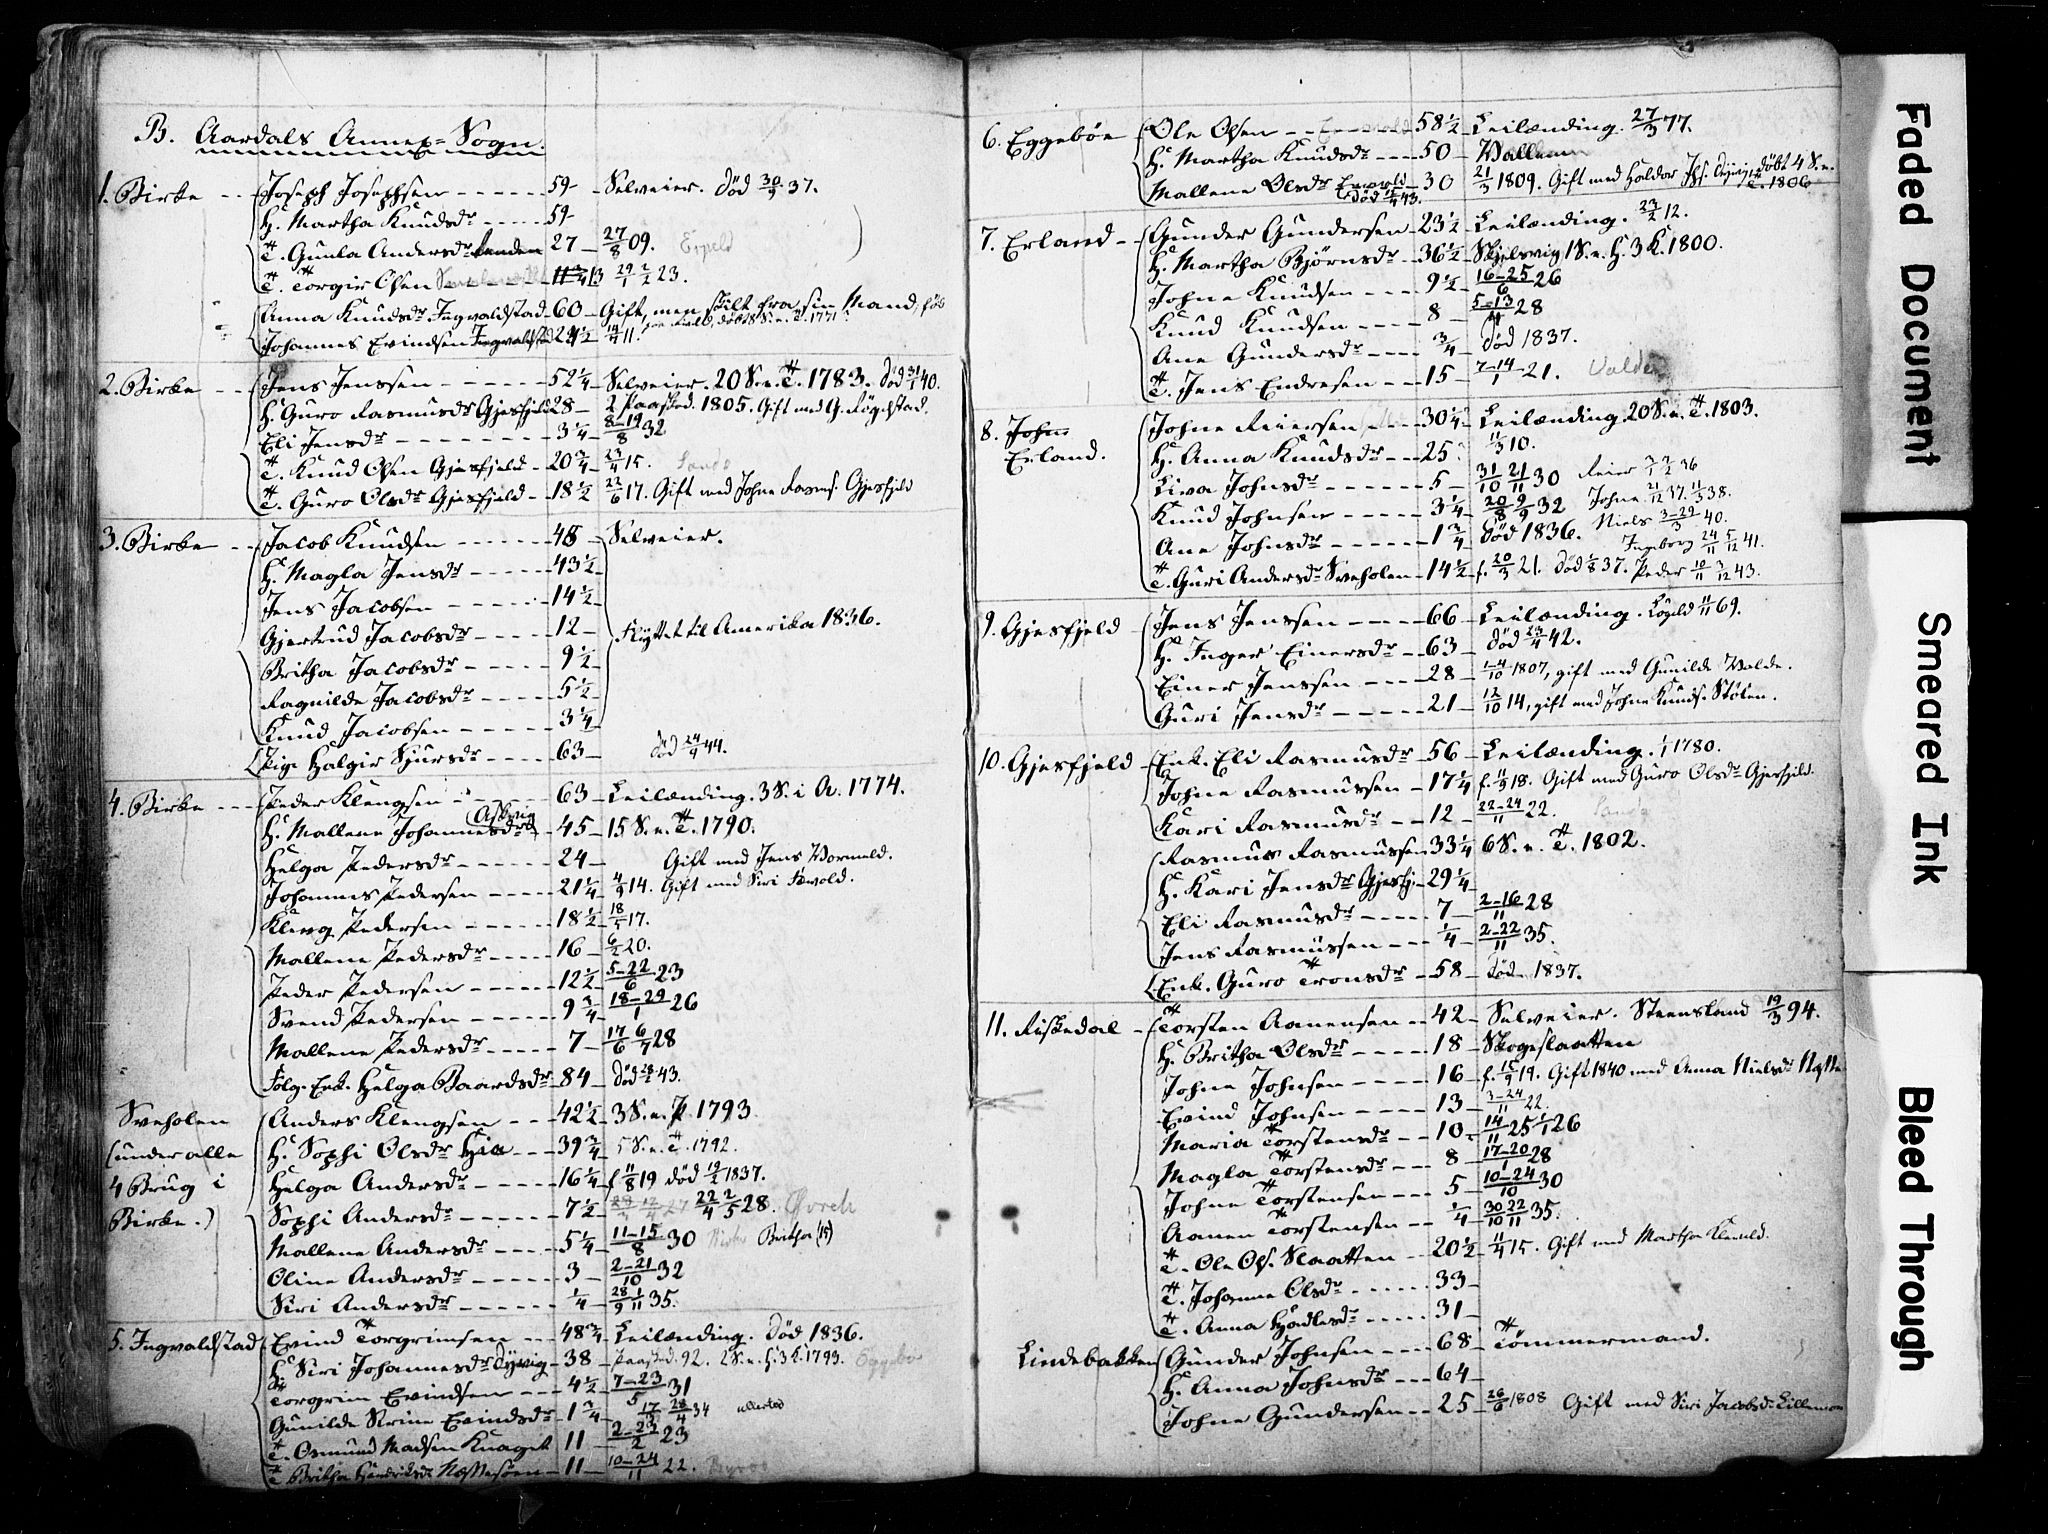 B. Aardals Annex-Sogn.
1. Birke -- Joseph Josephsen ----- 59 - Selveier. Død 30/9 37.
H. Martha Knudsdr ---- 59
T. Gunla Andersdr 27 - 27/8 09.
T. Torgir Olsen 29/1 2/2 23.
Anna Knudsdr Ingvaldstad - 60 - Gift, men skilt fra sin Mand,
Johannes Evindsen Ingvaldstad 24 1/2 14/4 11.
2. Birke -- Jens Jenssen ----- 52 1/4 - Selveier. 20 S. e. T. 1783. Død 31/1 40.
H. Guro Rasmusdr Gjesfjeld 28 - 2 Paasked. 1805. Gift med G. Røgelstad.
Eli Jensdr ------- 3 1/4 8-19/8 32
T. Knud Olsen Gjesfjeld - 20 3/4 23/4 15. Sande
T. Guro Olsdr Gjesfjeld -- 18 1/2 22/6 17. Gift med Johne Rasms. Gjesfjeld
3. Birke -- Jacob Knudsen ----- 48 - Selveier.
H. Magla Jensdr ----- 43 1/2
Jens Jacobsen ----- 14 1/2
Gjertrud Jacobsdr ---- 12 - Flyttet til Amerika 1836.
Britha Jacobsdr ----- 9 1/2
Ragnilde Jacobsdr ---- 5 1/2
Knud Jacobsen ----- 3 1/4
Pige Halgir Sjursdr ---- 63 - død 24/9 44.
4. Birke --- Peder Klengsen ---- 63 - Leilænding. 3 S. i A. 1774.
H. Mallene Johannesdr Askvig - 45 - 15 S. e. T. 1790.
Helga Pedersdr ----- 24 - Gift med Jens Wormeld.
Johannes Pedersen ---- 21 1/4 4/9 14. Gift med Siri Favold.
Kleng Pedersen ----- 18 1/2 18/5 17.
Mallene Pedersdr ----- 16 - 6/2 20.
Peder Pedersen ----- 12 1/2 5-22/6 23
Svend Pedersen ----- 9 3/4 18-29/1 26
Mallene Pedersdr ----- 7 - 17/6 6/7 28
Følg. Enk. Helga Baardsdr - 84 - Død 28/2 43.
Sveholen Anders Klengsen ---- 42 1/2 3 S. e. P. 1793
(under alle H. Sophi Olsdr Hia --- 39 3/4 5 S. e. T. 1792.
4 Brug i Helga Andersdr ---- 16 1/4 f. 11/8 19 død 19/2 1837.
Birke.) Sophi Andersdr ----- 7 1/2 22/4 2/5 28.
Mallene Andersdr ---- 5 1/4 11-15/8 30 Britha (15)
Oline Andersdr ----- 3 - 2-21/10 32
Siri Andersdr ------ 1/4 28/9 1/11 35.
5. Ingvaldstad Evind Torgrimsen --- 48 3/4 Leilænding. Død 1836.
H. Siri Johannesdr Dyvig - 38 - Paasked. 92. 2 S. e. H. 3 K. 1793. Eggebø
Torgrim Evindsen --- 4 1/2 7-23/5 31
Gunilde Serine Evindsdr - 1 3/4 28/4 34
T. Osmund Madsen Knaget 11 - 2-23/2 23
T. Britha Hendriksdr Næssesøen - 11 - 10-24/11 22.
6. Eggebøe Ole Olsen -- 58 1/2 - Leilænding. 27/3 77.
H. Martha Knudsdr --- 50 - Wallem
Mallene Olsdr - 30 21/3 1809. Gift med Haldor
død 43.
7. Erland -- Gunder Gundersen - 23 1/2 - Leilænding. 23/2 12.
H. Martha Bjørnsdr -- 36 1/2 Skjelsvig 1 S. e. H. 3 K. 1800.
Johne Knudsen --- 9 1/2 - 16-25/6 26
Knud Knudsen ---- 8 - 5-13/4 28
Ane Gundersdr --- 3/4 - død 1837.
T. Jens Endresen --- 15 - 7-14/1 21.
8. John Erland. Johne Reiersen 30 1/4 Leilænding 20 S. e. T. 1803.
H. Anna Knudsdr --- 25 11/3 10.
Liva Johnsdr ----- 5 - 31/10 21/11 30 Reier 36
Knud Johnsen ---- 3 1/4 20/8 9/9 32 Johne 21/12 37. 11/5 38.
Ane Johnsdr ----- 1 3/4 - død 1836. Niels 3-29/3 40.
T. Guri Andersdr Sveholen - 14 1/2 - f. 20/3 21. død 5/8 37. Peder 10/11 3/12 43.
Ingeborg 24/11 5/12 41.
9. Gjesfjeld Jens Jenssen ---- 66 - Leilænding. Løgeld 11/11 69.
H. Inger Einersdr -- 63 - død 23/4 42.
Einer Jenssen ---- 28 - 1-4/10 1807, gift med Gunilde Walde.
Guri Jensdr ----- 21 - 12/10 14, gift med Johne Knuds. Stølen.
10. Gjesfjeld Enk. Eli Rasmusdr 56 - Leilænding. 1/1 1780.
Johne Rasmussen - 17 1/4 f. 11/9 18. Gift med Guro Olsdr Gjesfjeld.
Kari Rasmusdr -- 12 - 22-24/11 22. Sande
Rasmus Rasmussen 33 1/4 6 S. e. T. 1802.
H. Kari Jensdr Gjesfj. - 29 1/4
Eli Rasmusdr ---- 7 - 2-16/11 28
Jens Rasmussen --- 1/4 - 2-22/11 35.
Enk. Guro Tronsdr - 58 - død 1837.
11. Riskedal - Torsten Aanensen -- 42 - Selveier. Steensland 19/3 94.
H. Britha Olsdr --- 18 - Skogeslaatten
Johne Johnsen --- 16 - f. 15/9 19. Gift 1840 med Anna Nielsdr
Evind Johnsen ---- 13 - 3-24/11 22.
Maria Torstensdr -- 10 - 14/11 25 1/1 26
Magla Torstensdr -- 8 - 17-20/1 28
Johne Torstensen -- 5 - 10-24/10 30
Aanen Torstensen -- 1/4 - 30/10 22/11 35.
T. Ole Ols. Slaatten -- 20 1/2 - 11/4 15. Gift med Martha
T. Johanne Olsdr ---- 33 -
T. Anna Hadlesdr ---- 31 -
Lindebakken Gunder Johnsen --- 68 - Tømmermand.
H. Anna Johnsdr --- 64 -
Johne Gundersen -- 25 - 26/6 1808 Gift med Siri Jacobsdr
Faded Document
Smeared Ink
Bleed Through